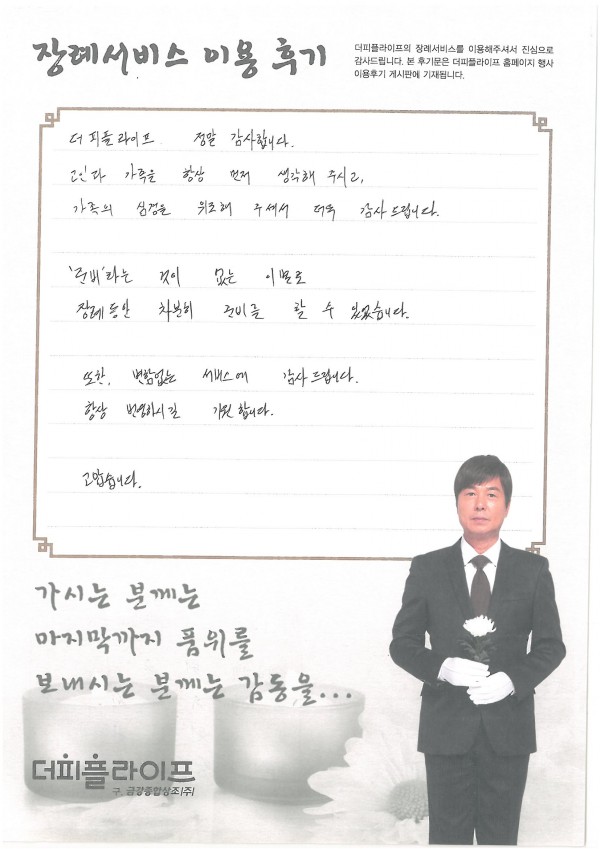 장례서비스 이용 후기
더피플라이프의 장례서비스를 이용해주셔서 진심으로
감사드립니다. 본 후기문은 더피플라이프 홈페이지 행사
이용후기 게시판에 기재됩니다.
더피플라이프 정말 감사합니다.
고인과 가족을 항상 먼저 생각해 주시고,
가족의 심경을 위로해 주셔서 더욱 감사드립니다.
'준비'라는 것이 없는 이별로
장례동안 차분히 준비를 할 수 있었습니다.
또한, 변함없는 서비스에 감사드립니다.
항상 번영하시길 기원합니다.
고맙습니다.
가시는 분께는
마지막까지 품위를
보내시는 분께는 감동을...
더피플라이프
구. 금강종합상조(주)